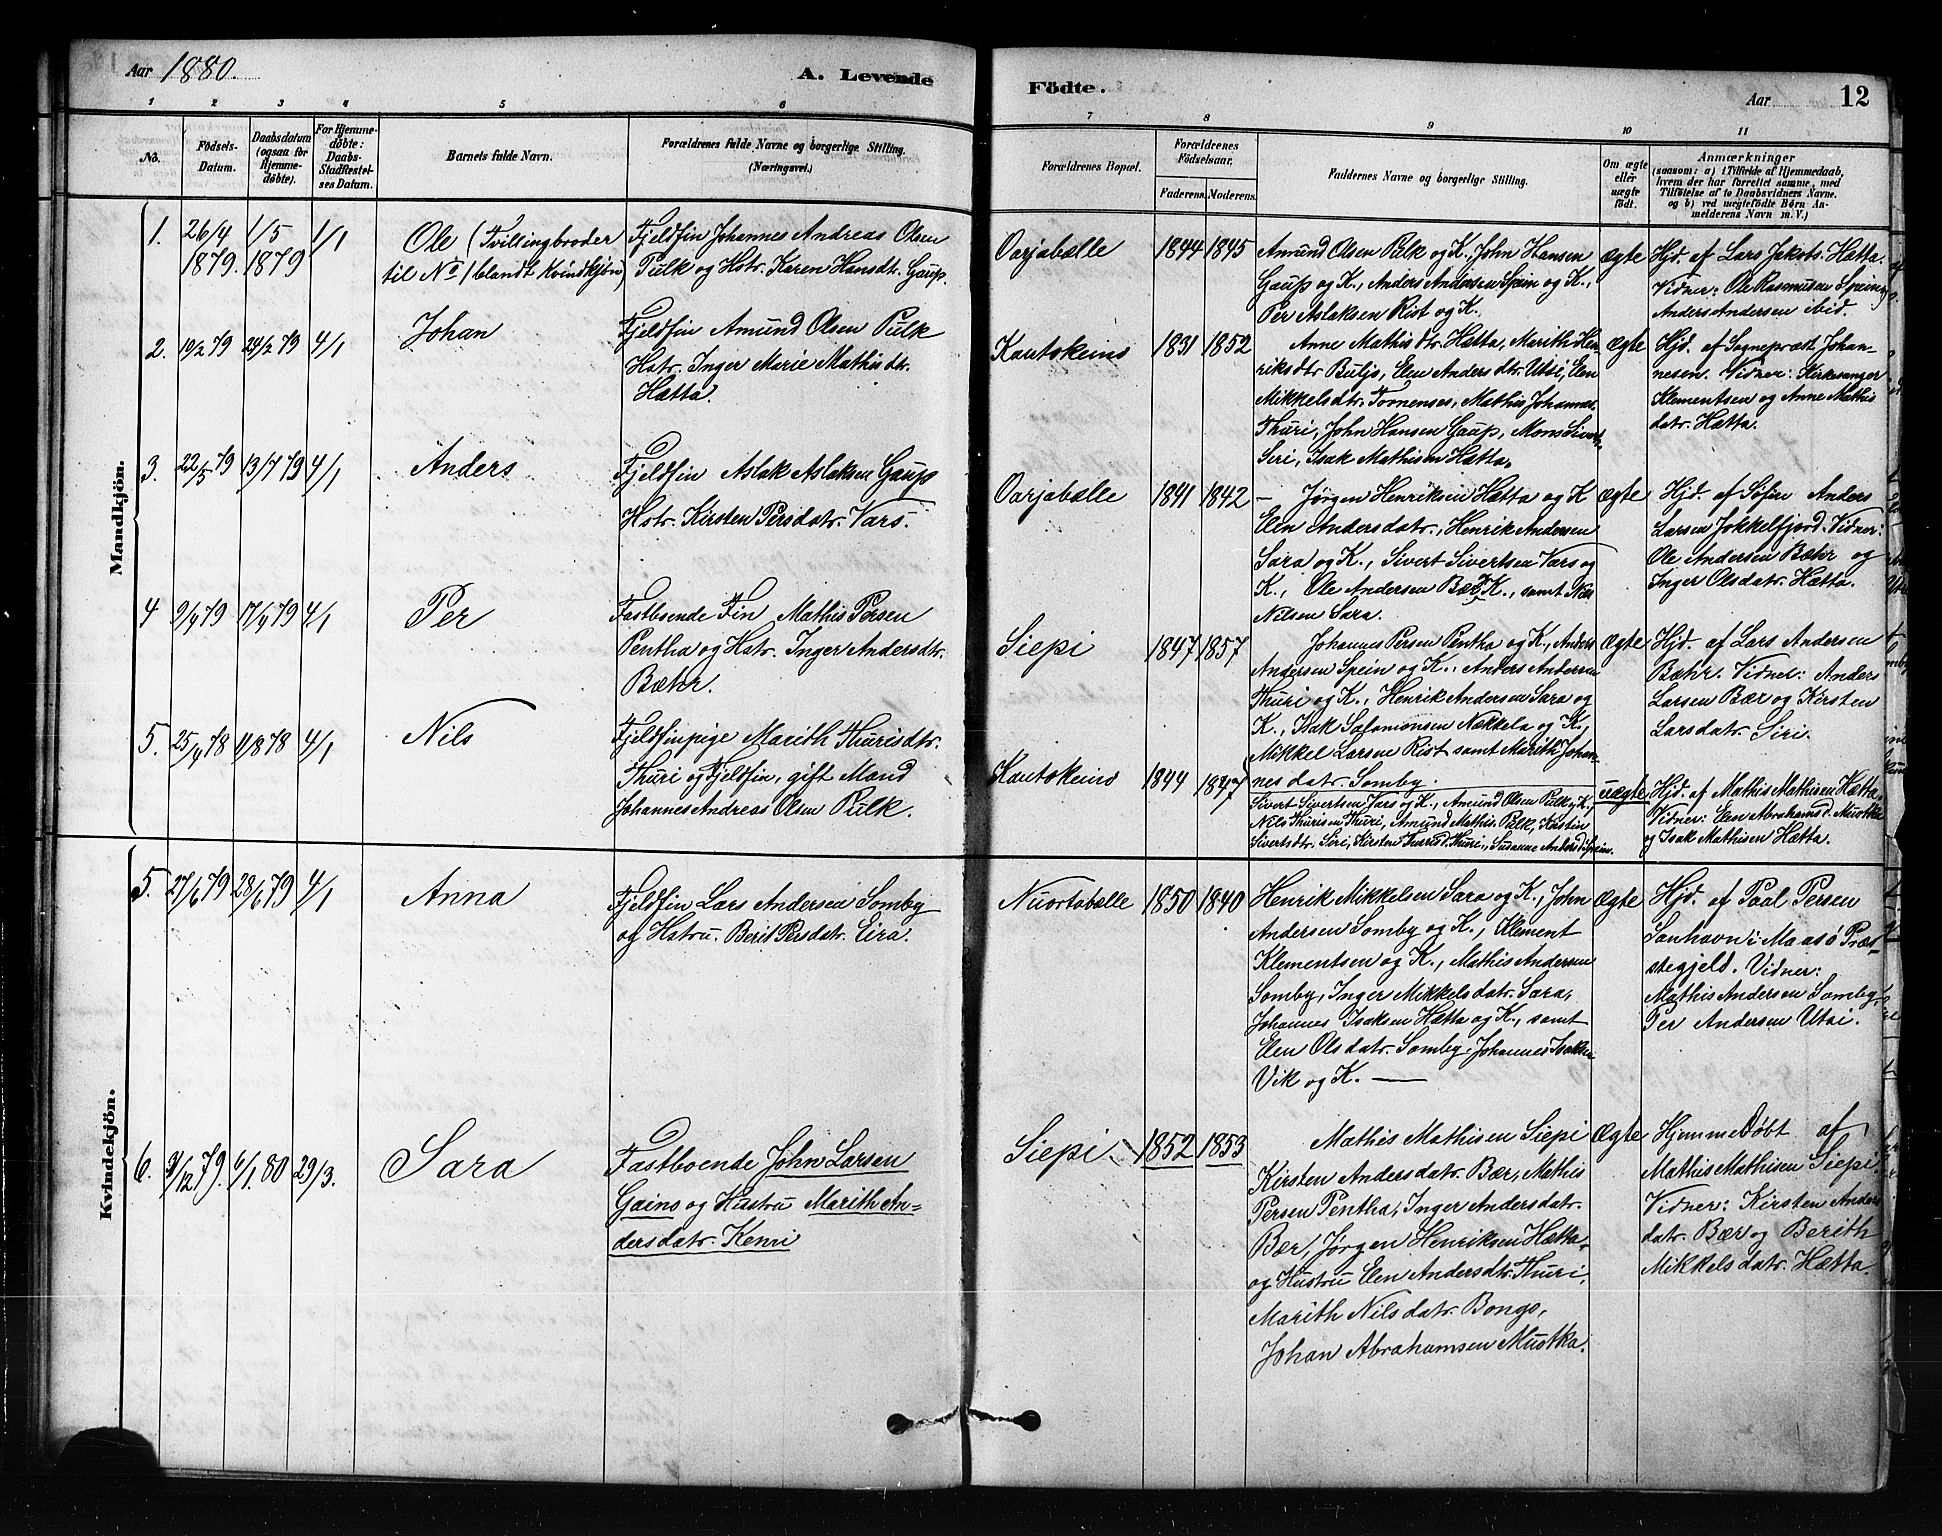 Aar 1880.
A. Levende
Födte.
Aar
12
1 2 3 4 5 6 7 8 9 10 11
No.
Födsels-
Datum.
Daabsdatum
(ogsaa for
Hjemme-
döbte).
For Hjemme-
döbte:
Daabs-
Stadfæstel-
ses Datum.
Barnets fulde Navn.
Forældrenes fulde Navne og borgerlige Stilling.
(Næringsvei.)
Forældrenes Bopæl.
Forældrenes
Födselsaar.
Faderens. Moderens.
Faddernes Navne og borgerlige Stilling.
Om ægte
eller
uægte
födt.
Anmærkninger
(saasom: a) i Tilfælde af Hjemmedaab,
hvem der har forrettet samme, med
Tilföielse af to Daabsvidners Navne.
og b) ved uægtefödte Börn An-
melderens Navn m. V.)
Mandkjön.
1. 26/4 1879. 1/5 1879 1/1
Ole (Tvillingbroder
til No (blandt Kvindkjön)
Fjeldfin Johannes Andreas Olsen
Pulk og Hstr. Karen Hansdt. Gaup.
Oarjabælle 1844 1845
Amund Olsen Pulk og K., John Hansen
Gaup og K., Anders Andersen Spein og K.,
Per Aslaksen Rist og K.
Ægte
Hjd. af Lars Jakobs. Hætta.
Vidner: Ole Rasmusen Spein og
Anders Andersen ibid.
2. 19/2 79 24/2 79 4/1
Johan
Fjeldfin Amund Olsen Pulk
Hstr. Inger Marie Mathisdtr.
Hætta.
Kautokeino 1831 1852
Anne Mathisdtr. Hætta, Marith Hen-
riksdtr. Buljo, Elen Andersdtr. Utsi, Elen
Mikkelsdtr. Tornenses, Mathis Johannes.
Thuri, John Hansen Gaup, Mons Sivert.
Siri, Isak Mathisen Hætta.
Ægte
Hjd. af Sognepræst Johan-
nesen. Vidner: Kirkesanger
Klementsen og Anne Mathis
datr. Hætta.
3. 22/5 79 13/7 79 4/1
Anders
Fjeldfin Aslak Aslaksen Gaup
Hstr. Kirsten Persdatr. Vars.
Oarjabælle 1841 1842
— Jørgen Henriksen Hætta og K
Elen Andersdatr., Henrik Andersen
Sara og K., Sivert Sivertsen Vars og
K., Ole Andersen Bær og K., samt Nils
Nilsen Sara.
Ægte
Hjd. af Søfin Anders
Larsen Jokkelfjord. Vidner:
Ole Andersen Bæhr og
Inger Olsdatr. Hætta.
4 9/9 79 17/9 79 4/1
Per
Fastboende Fin Mathis Persen
Pentha og Hstr. Inger Andersdtr.
Bæhr.
Siepi 1847 1857
Johannes Persen Pentha og K., Anders
Andersen Spein og K., Anders Andersen
Thuri og K., Henrik Andersen Sara og
K., Isak Salomonsen Nækkela og K.,
Mikkel Larsen Rist samt Marith Johan-
nesdatr. Somby.
Ægte
Hjd. af Lars Andersen
Bæhr. Vidner: Anders
Larsen Bær og Kirsten
Larsdatr. Siri.
5. 25/4 78 4/8 78 4/1
Nils
Fjeldfinpige Marith Thurisdtr.
Thuri og Fjeldfin, gift Mand
Johannes Andreas Olsen Pulk.
Kautokeino 1844 1847
Sivert Sivertsen Vars og K., Amund Olsen Pulk og K.,
Nils Thurisen Thuri, Amund Mathis. Pulk, Kirstin
Sivertsdtr. Siri, Kirsten Thurisd. Thuri, Susanne Andersd. Spein.
uægte
Hjd. af Mathis Mathisen Hætta.
Vidner: Elen Abrahamsd. Mustka
og Isak Mathisen Hætta.
Kvindekjön.
5. 27/6 79 28/6 79 4/1
Anna
Fjeldfin Lars Andersen Somby
og Hstru. Berit Persdatr. Eira.
Nuortabælle 1850 1840
Henrik Mikkelsen Sara og K., John
Andersen Somby og K., Klement
Klementsen og K., Mathis Andersen
Somby, Inger Mikkelsdatr. Sara,
Johannes Isaksen Hætta og K., samt
Elen Olsdatr. Somby, Johannes Isaksen
Vik og K. —
Ægte
Hjd. af Paal Persen
Sanhavn i Maasö Præ-
stegjeld. Vidner:
Mathis Andersen Somby,
Per Andersen Utsi.
6. 9/12 79. 6/1. 80 29/3.
Sara
Fastboende John Larsen
Gaino og Hustru Marith An-
dersdatr. Kenri
Siepi. 1852 1853
Mathis Mathisen Siepi
Kirsten Andersdatr. Bær, Mathis
Persen Pentha, Inger Andersdatr.
Bær, Jørgen Henriksen Hætta
og Hustru Elen Andersdtr. Thuri,
Marith Nilsdatr. Bongo,
Johan Abrahamsen Mustka.
Ægte
Hjemmedøbt af
Mathis Mathisen Siepi.
Vidner: Kirsten Anders
datr. Bær og Berith
Mikkelsdatr. Hætta.